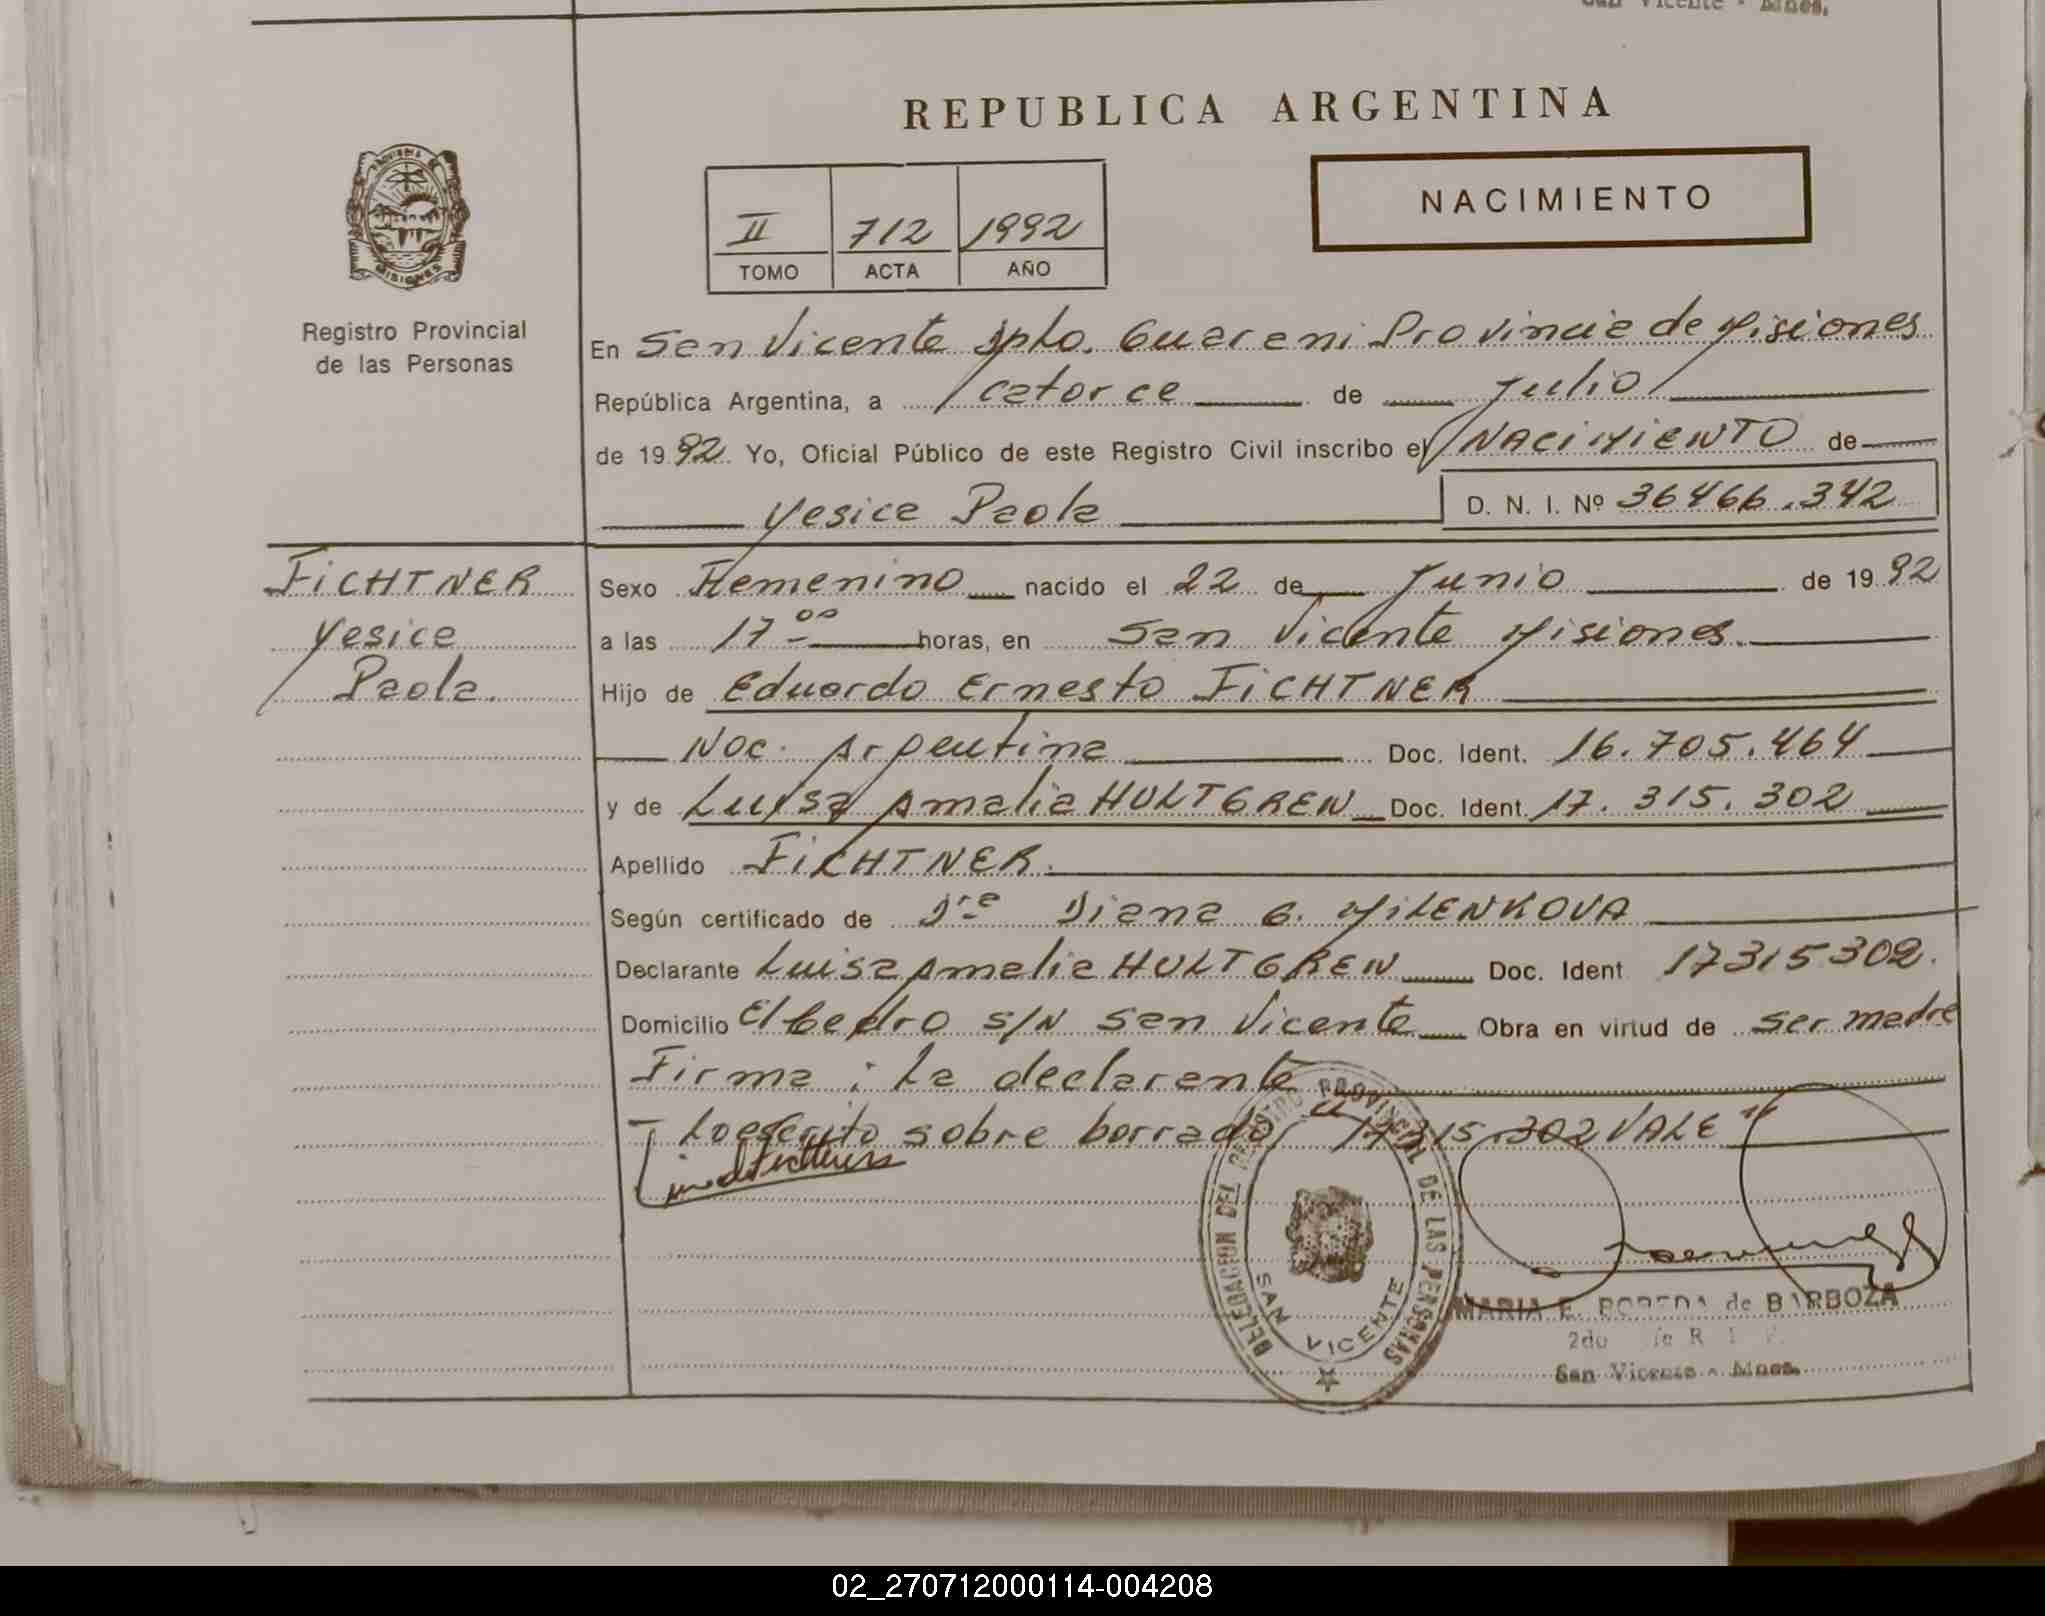 San Vicente - Mnes.
REPUBLICA ARGENTINA
NACIMIENTO
II 712 1992
TOMO ACTA AÑO
PROVINCIA DE
MISIONES
Registro Provincial
de las Personas
En San Vicente Dpto. Guarani Provincia de Misiones
República Argentina, a catorce de Julio
de 1992 Yo, Oficial Público de este Registro Civil inscribo el NACIMIENTO de
Yesica Paola D. N. I. Nº 36466.342
FICHTNER
Yesica
Paola.
Sexo Femenino nacido el 22 de Junio de 1992
a las 17 00 horas, en San Vicente Misiones.
Hijo de Eduardo Ernesto FICHTNER
Nac. Argentina Doc. Ident. 16.705.464
y de Luisa Amalia HULTGREN Doc. Ident. 17.315.302
Apellido FICHTNER.
Según certificado de Dra Diana G. MILENKOVA
Declarante Luisa Amalia HULTGREN Doc. Ident 17315302.
Domicilio El Cedro S/N San Vicente Obra en virtud de ser madre
Firma: La declarante
Lo escrito sobre borrado "17315.302 VALE"
DELEGACION DEL REGISTRO PROVINCIAL DE LAS PERSONAS
SAN VICENTE
MARIA E. de BARBOZA
2do
San Vicente - Mnes.
02_270712000114-004208